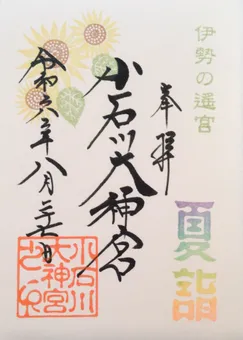 伊勢の遥宮
夏詣
奉拝
小石川大神宮
令和六年八月二十七日
小石川
大神宮
之印